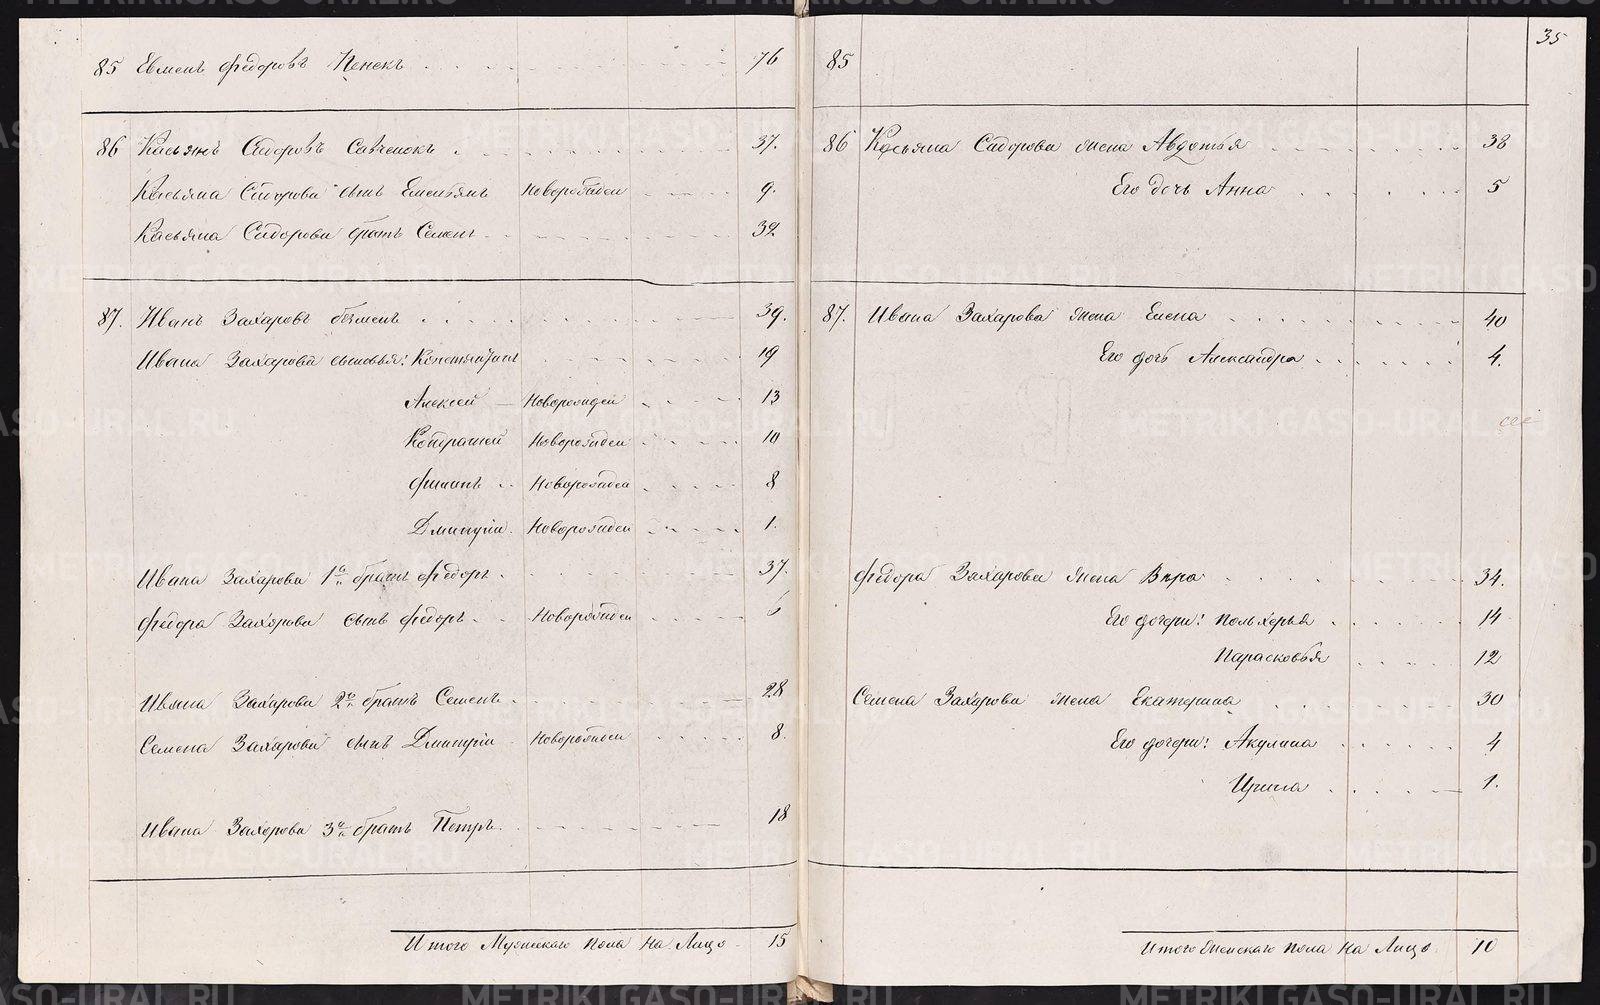 35
85 Евменъ Федоровъ Ненекъ 76
86 Касьянъ Сидоровъ Савченокъ 37.
Касьяна Сидорова сынъ Емельянъ Новорожден 9.
Касьяна Сидорова братъ Семенъ 32
87. Иванъ Захаровъ 39.
Ивана Захарова сыновья: Константинъ 19
Алексей Новорожден 13
Кондратей Новорожден 10
Филипъ Новорожден 8
Дмитрiй Новорожден 1.
Ивана Захарова 1й братъ Федоръ 37.
Федора Захарова сынъ Федоръ Новорожден 6
Ивана Захарова 2й братъ Семенъ 28
Семена Захарова сынъ Дмитрiй Новорожден 8.
Ивана Захарова 3й братъ Петръ 18
Итого Мужескаго пола на Лицо 15
85
86 Касьяна Сидорова жена Авдотья 38
Его дочь Анна 5
87. Ивана Захарова жена Елена 40
Его дочь Александра 4.
Федора Захарова жена Вера 34.
Его дочери: Польхерья 14
Парасковья 12
Семена Захарова жена Екатерина 30
Его дочери: Акулина 4
Ирина 1.
Итого Женскаго пола на Лицо 10
METRIKI.GASO-URAL.RU